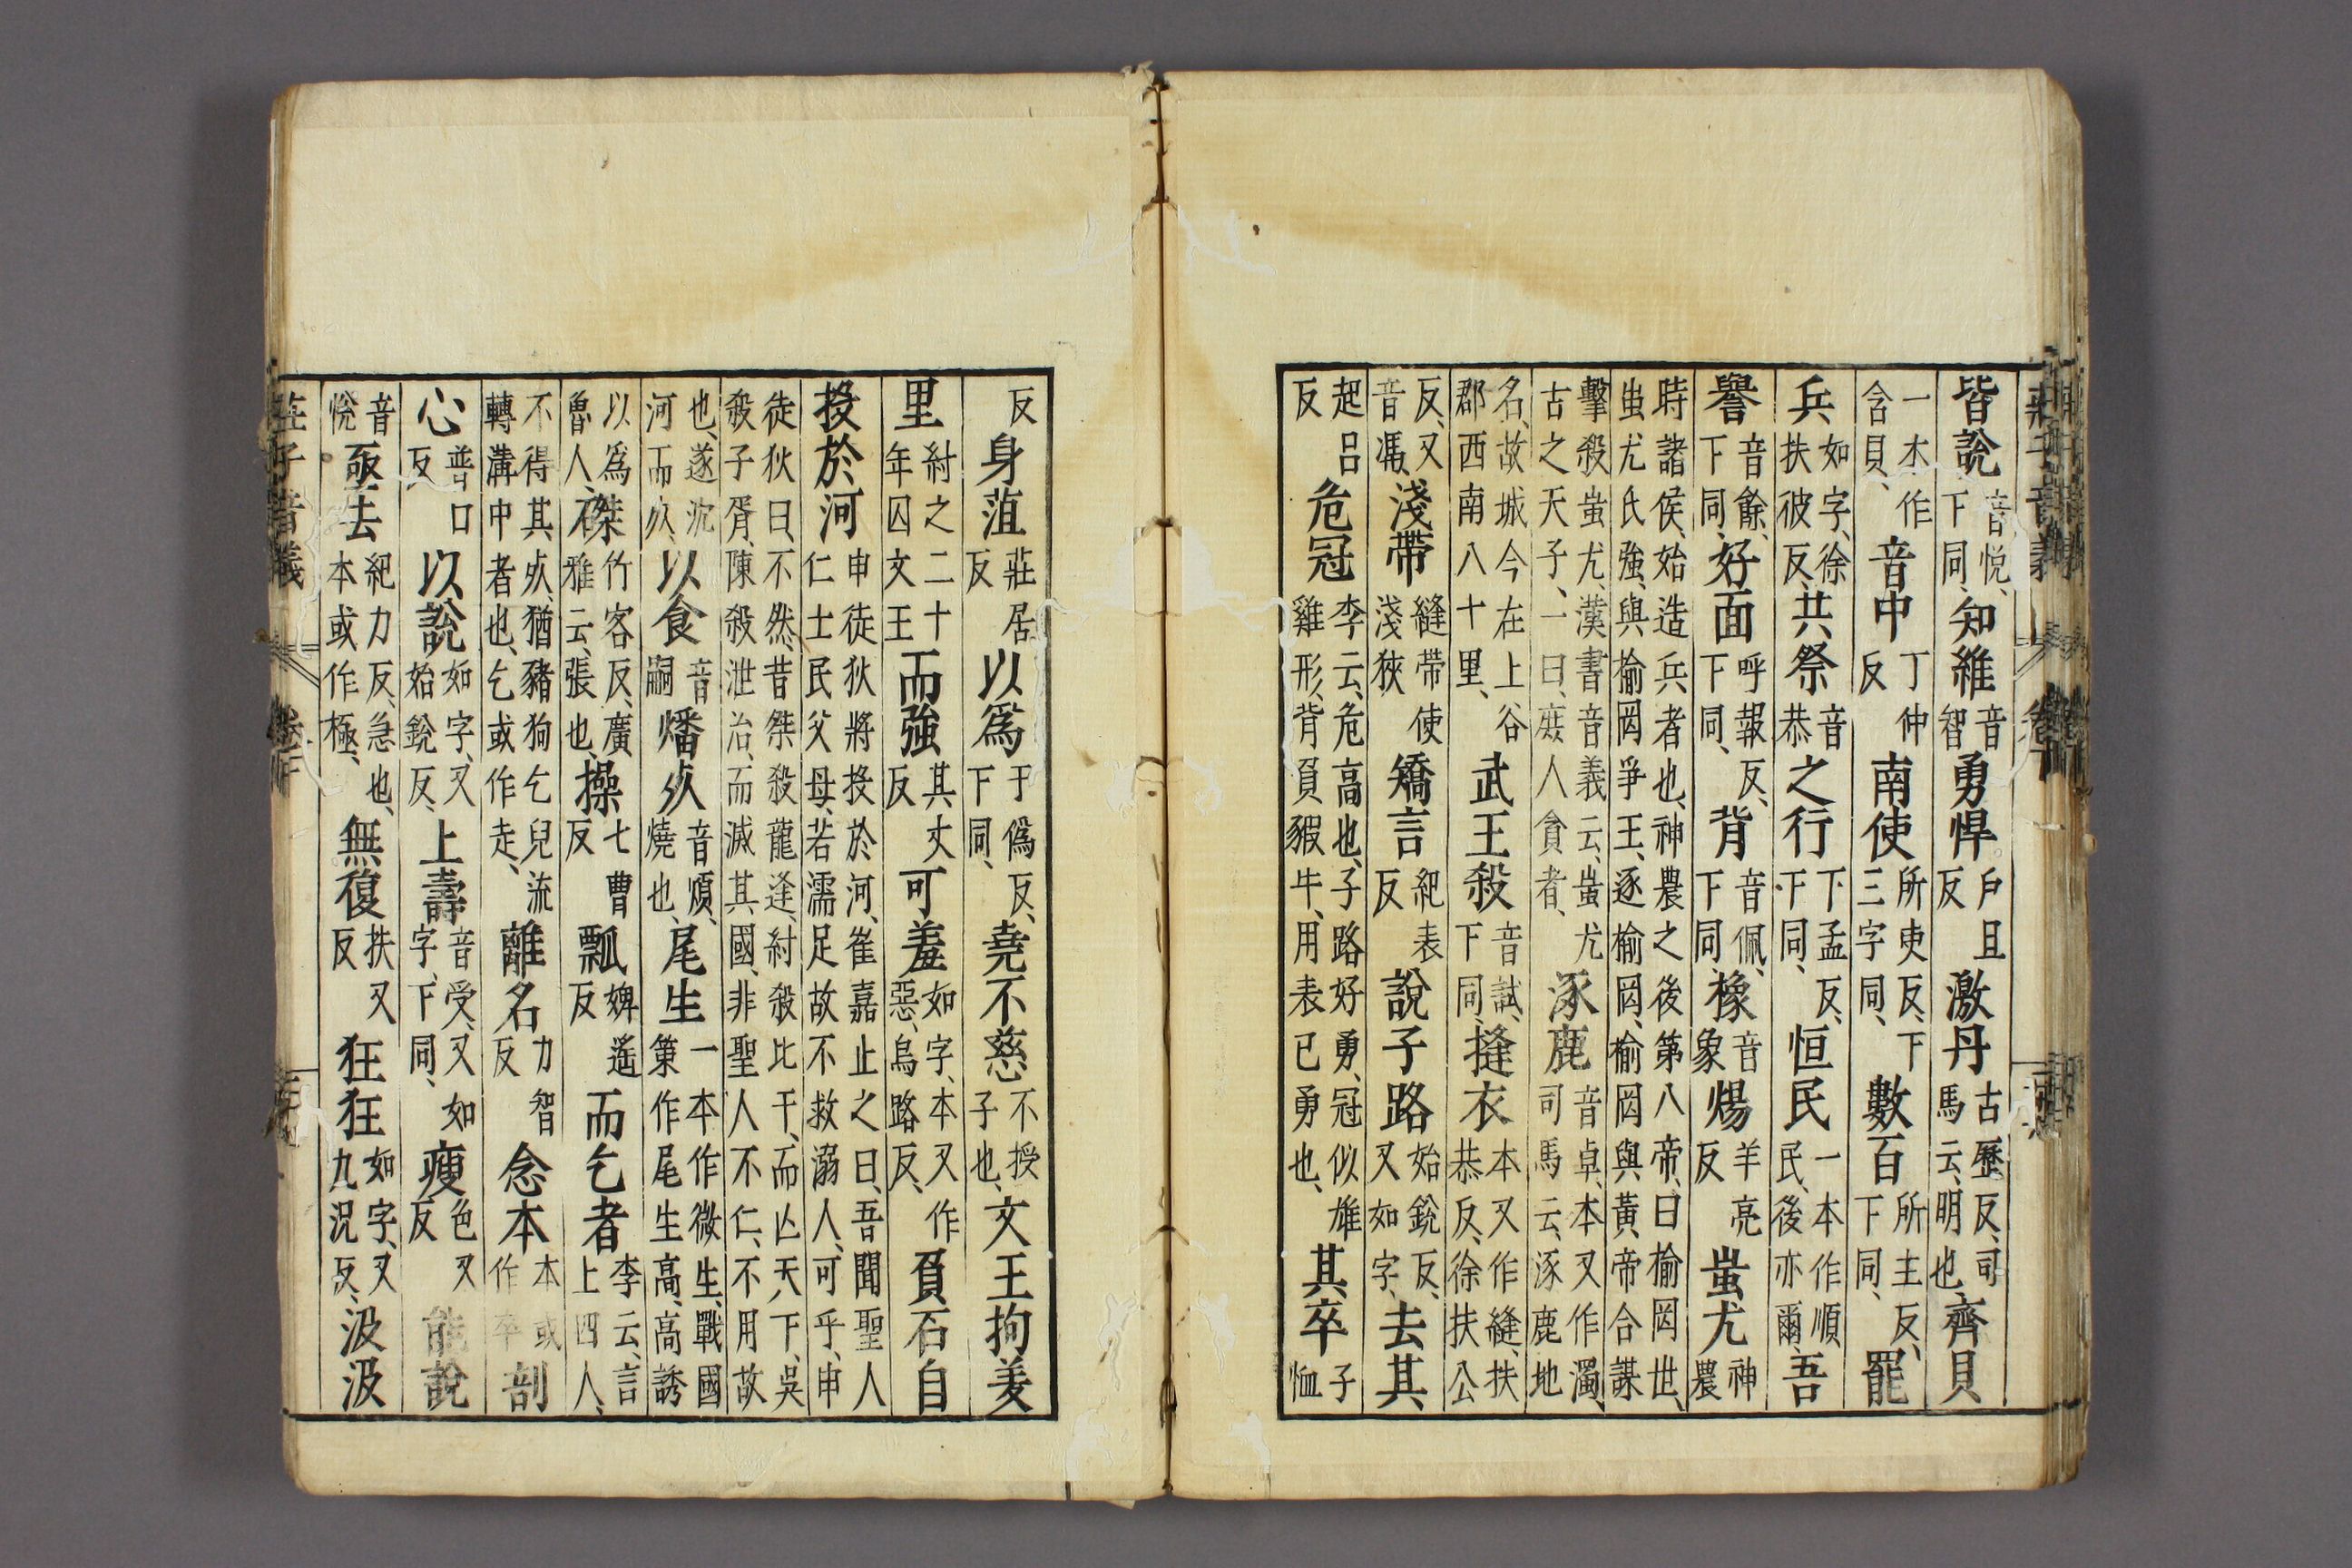 皆說音悅、下同、知維音智勇悍戶且反激丹古歷反、司馬云、明也、齊貝
一本作含貝、音中丁仲反南使所吏反、下三字同、數百所主反、下同、罷
兵如字、徐扶彼反、共祭音恭之行下孟反、下同、恒民一本作順民、後亦爾、吾
譽音餘、下同、好面呼報反、下同、背音佩、下同、橡音象煬羊亮反蚩尤神農
時諸侯、始造兵者也、神農之後第八帝、曰榆罔世、蚩尤氏強、與榆罔爭王、逐榆罔、榆罔與黃帝合謀
擊殺蚩尤、漢書音義云、蚩尤古之天子、一曰、庶人貪者、涿鹿音卓、本又作濁、司馬云、涿鹿地
名、故城今在上谷郡西南八十里、武王殺音試、下同、摓衣本又作縫、扶恭反、徐扶公
反、又音馮、淺帶縫帶使淺狹矯言紀表反說子路始銳反、又如字、去其
起呂反危冠李云、危高也、子路好勇、冠似雄雞形、背負豭牛、用表已勇也、其卒子恤
反身菹莊居反以爲于僞反、下同、堯不慈不授子也、文王拘羑
里紂之二十年囚文王而強其丈反可羞如字、本又作惡、烏路反、負石自
投於河申徒狄將投於河、崔嘉止之曰、吾聞聖人仁士民父母、若濡足故不救溺人、可乎、申
徒狄曰、不然、昔桀殺龍逢、紂殺比干、而亾天下、吳殺子胥、陳殺泄冶、而滅其國、非聖人不仁、不用故
也、遂沉河而𣦸、以食音嗣燔𣦸音煩、燒也、尾生一本作微生、戰國策作尾生高、高誘
以爲魯人、磔竹客反、廣雅云、張也、操七曹反瓢婢遙反而乞者李云、言上四人、
不得其𣦸、猶豬狗乞兒流轉溝中者也、乞或作走、離名力智反念本本或作卒剖
心普口反以說如字、又始銳反、上壽音受、又如字、下同、瘦色又反能說
音悅亟去紀力反、急也、本或作極、無復扶又反狂狂如字、又九況反、汲汲
莊子音義